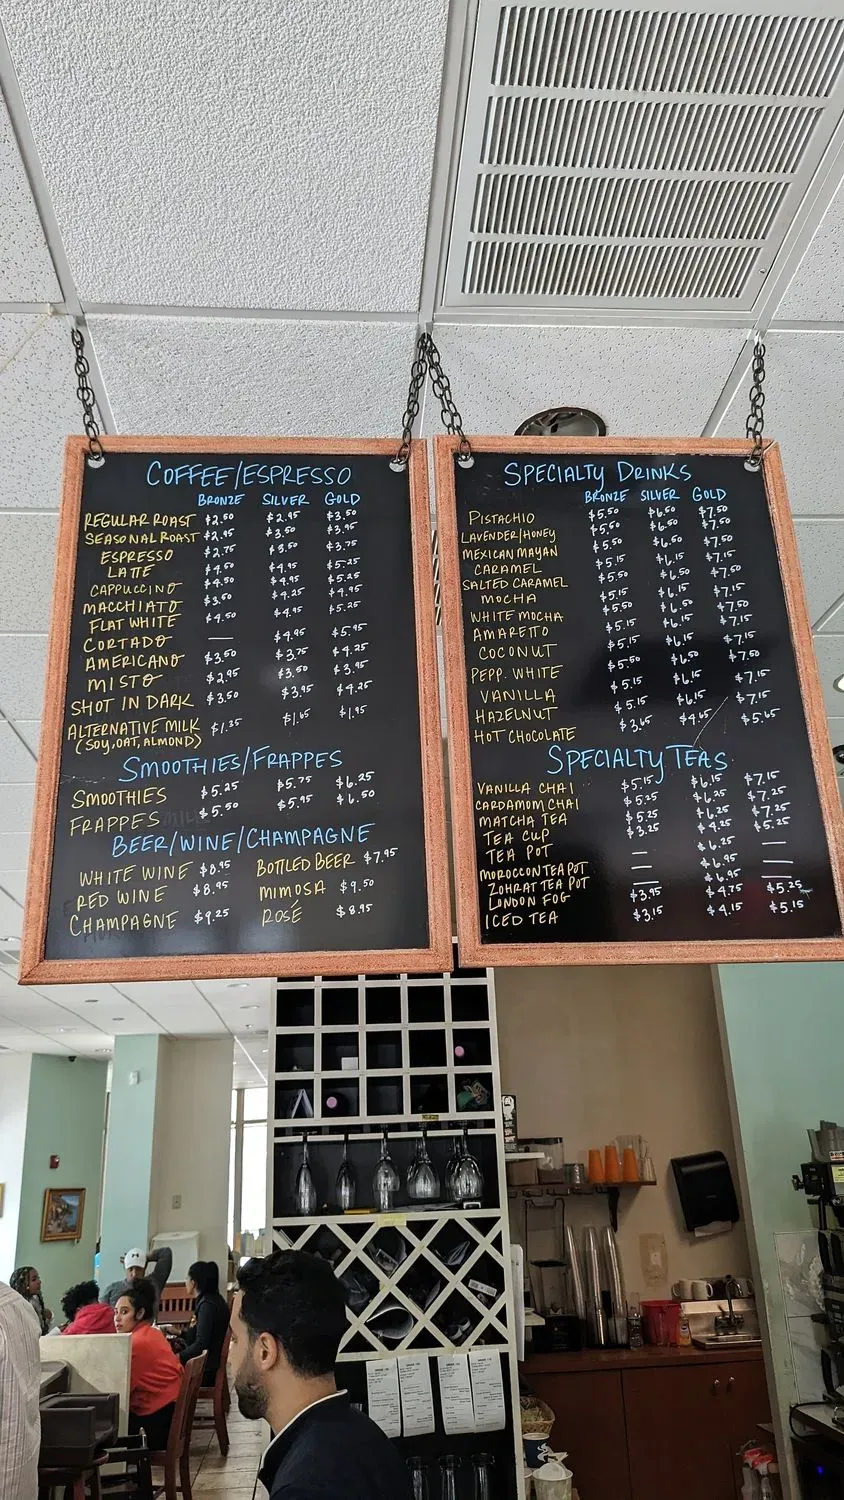 COFFEE/ESPRESSO
BRONZE SILVER GOLD
REGULAR ROAST $2.50 $2.95 $3.50
SEASONAL ROAST $2.95 $3.50 $3.95
ESPRESSO $2.75 $3.50 $3.75
LATTE $4.50 $4.95 $5.25
CAPPUCCINO $4.50 $4.95 $5.25
MACCHIATO $3.50 $4.25 $4.95
FLAT WHITE $4.50 $4.95 $5.25
CORTADO — $4.95 $5.95
AMERICANO $3.50 $3.75 $4.25
MISTO $2.95 $3.50 $3.95
SHOT IN DARK $3.50 $3.95 $4.25
ALTERNATIVE MILK $1.35 $1.65 $1.95
(SOY, OAT, ALMOND)
SMOOTHIES/FRAPPES
SMOOTHIES $5.25 $5.75 $6.25
FRAPPES $5.50 $5.95 $6.50
BEER/WINE/CHAMPAGNE
WHITE WINE $8.95 BOTTLED BEER $7.95
RED WINE $8.95 MIMOSA $9.50
CHAMPAGNE $9.25 ROSÉ $8.95
SPECIALTY DRINKS
BRONZE SILVER GOLD
PISTACHIO $5.50 $6.50 $7.50
LAVENDER/HONEY $5.50 $6.50 $7.50
MEXICAN MAYAN $5.50 $6.50 $7.50
CARAMEL $5.15 $6.15 $7.15
SALTED CARAMEL $5.50 $6.50 $7.50
MOCHA $5.15 $6.15 $7.15
WHITE MOCHA $5.50 $6.50 $7.50
AMARETTO $5.15 $6.15 $7.15
COCONUT
PEPP. WHITE $5.50 $6.50 $7.50
VANILLA $5.15 $6.15 $7.15
HAZELNUT
HOT CHOCOLATE $3.65 $4.65 $5.65
SPECIALTY TEAS
VANILLA CHAI $5.15 $6.15 $7.15
CARDAMOM CHAI $5.25 $6.25 $7.25
MATCHA TEA $5.25 $6.25 $7.25
TEA CUP $3.25 $4.25 $5.25
TEA POT — $6.25 —
MOROCCON TEA POT — $6.95 —
ZOHRAT TEA POT — $6.95 —
LONDON FOG $3.95 $4.75 $5.25
ICED TEA $3.15 $4.15 $5.15